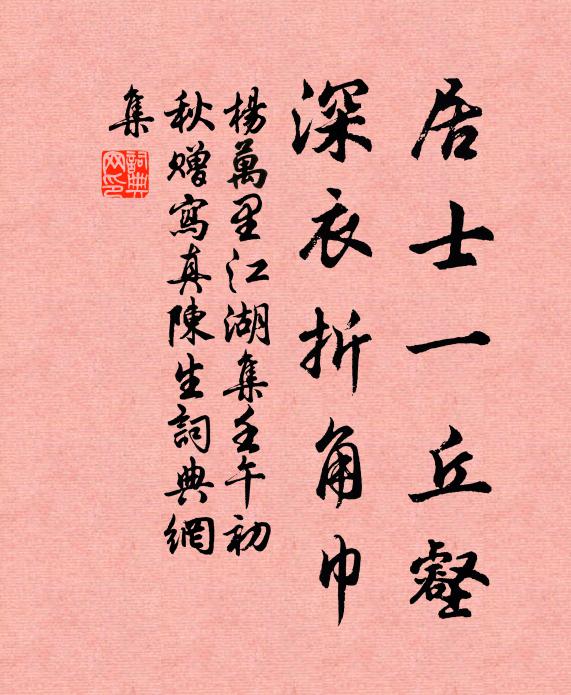 居士一丘壑
深衣折角巾
楊萬里江湖集壬午初
秋贈寫真陳生詞典網
集
詞典网印